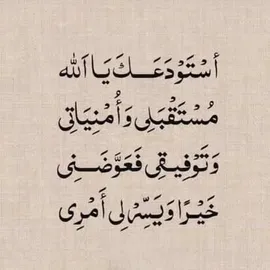 أَسْتَوْدَعَـكَ يَا اَللّٰه
مُسْتَقْبَلِى وَأُمْنِيَاتِى
وَتَوْفِيقِى فَعَوَّضَـنِى
خَيْرًا وَيَسِّرْ لِى أَمْرِى